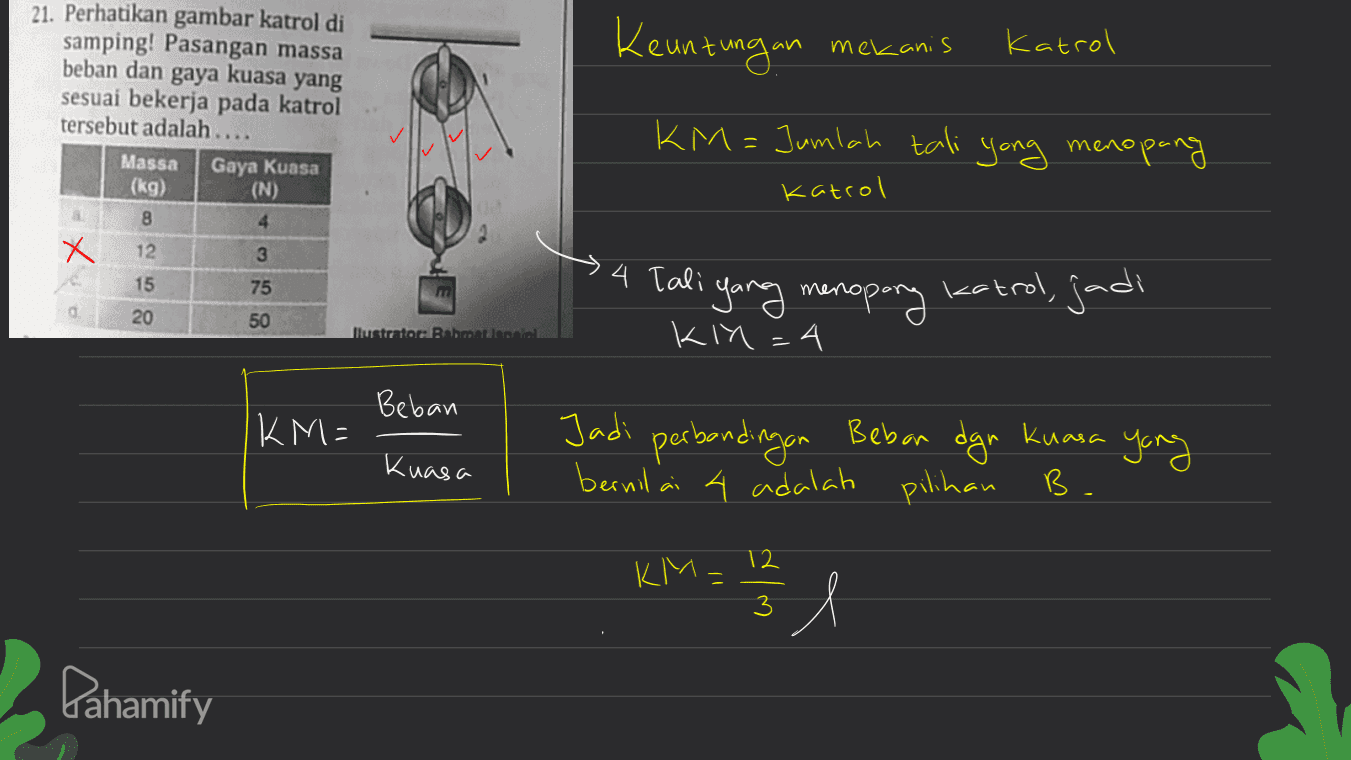 21. Perhatikan gambar katrol di
samping! Pasangan massa
beban dan gaya kuasa yang
sesuai bekerja pada katrol
tersebut adalah ....
Massa (kg) Gaya Kuasa (N)
a. 8 4
12 3
c. 15 75
d. 20 50
1
2
m
Ilustrator: Rahmat
Keuntungan mekanis katrol
KM = Jumlah tali yang menopang
katrol
4 Tali yang menopang katrol, jadi
KM = 4
KM = Beban
Kuasa
Jadi perbandingan Beban dgn kuasa yang
bernilai 4 adalah pilihan B.
KM = 12
3
Pahamify